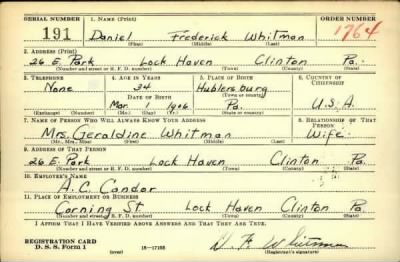 SERIAL NUMBER 1. NAME (Print) ORDER NUMBER
191 Daniel Frederick Whitman 1764
(First) (Middle) (Last)
2. ADDRESS (Print)
26 E. Park Lock Haven Clinton Pa.
(Number and street or R. F. D. number) (Town) (County) (State)
3. TELEPHONE 4. AGE IN YEARS 5. PLACE OF BIRTH 6. COUNTRY OF CITIZENSHIP
None 34 Hublersburg
DATE OF BIRTH (Town or county)
Mar. 1 1906 Pa. U.S.A.
(Exchange) (Number) (Mo.) (Day) (Yr.) (State or country)
7. NAME OF PERSON WHO WILL ALWAYS KNOW YOUR ADDRESS 8. RELATIONSHIP OF THAT PERSON
Mrs. Geraldine Whitman Wife
(Mr., Mrs., Miss) (First) (Middle) (Last)
9. ADDRESS OF THAT PERSON
26 E. Park Lock Haven Clinton Pa
(Number and street or R. F. D. number) (Town) (County) (State)
10. EMPLOYER'S NAME
A. C. Candor
11. PLACE OF EMPLOYMENT OR BUSINESS
Corning St Lock Haven Clinton Pa
(Number and street or R. F. D. number) (Town) (County) (State)
I AFFIRM THAT I HAVE VERIFIED ABOVE ANSWERS AND THAT THEY ARE TRUE.
REGISTRATION CARD
D. S. S. Form 1 (over) 16—17105 D F Whitman
(Registrant's signature)